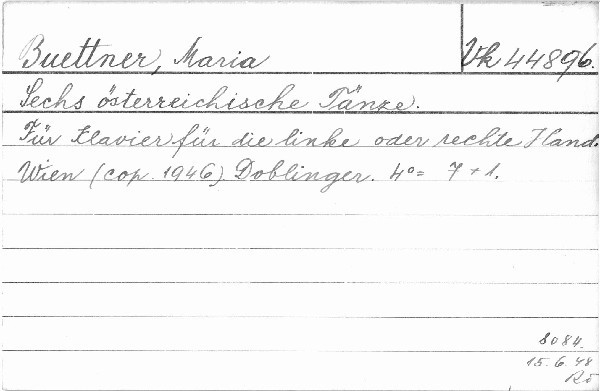 Buettner, Maria
Vk 44896.
Sechs österreichische Tänze.
Für Klavier für die linke oder rechte Hand.
Wien (cop. 1946) Doblinger. 4°= 7 + 1.
8084.
15.6.48
Rö